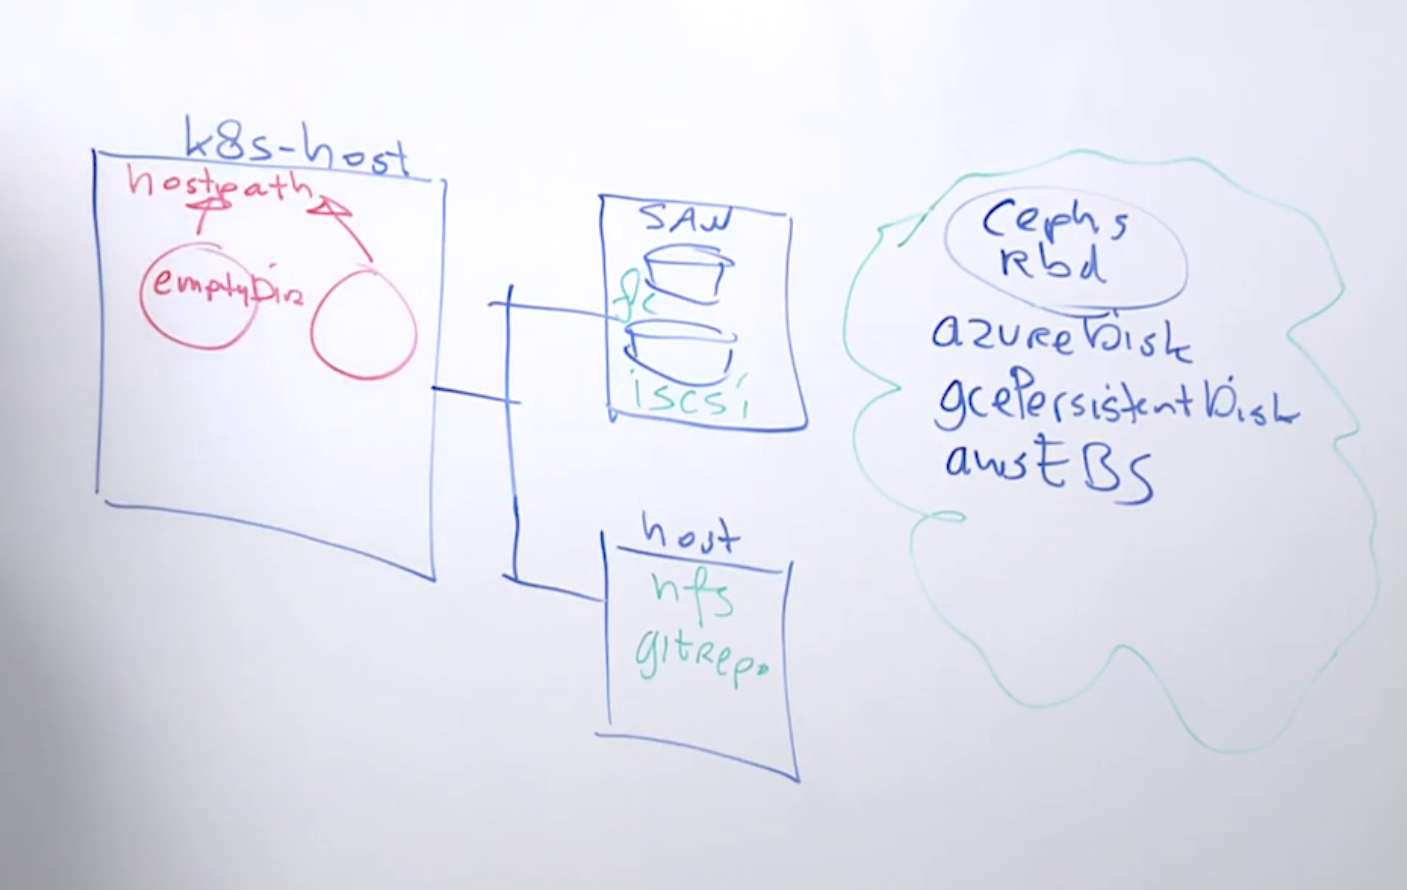 k8s-host
hostpath
emptyDir
SAN
fc
iscsi
host
nfs
gitRepo
Cephs
Rbd
azureDisk
gcePersistentDisk
awsEBS